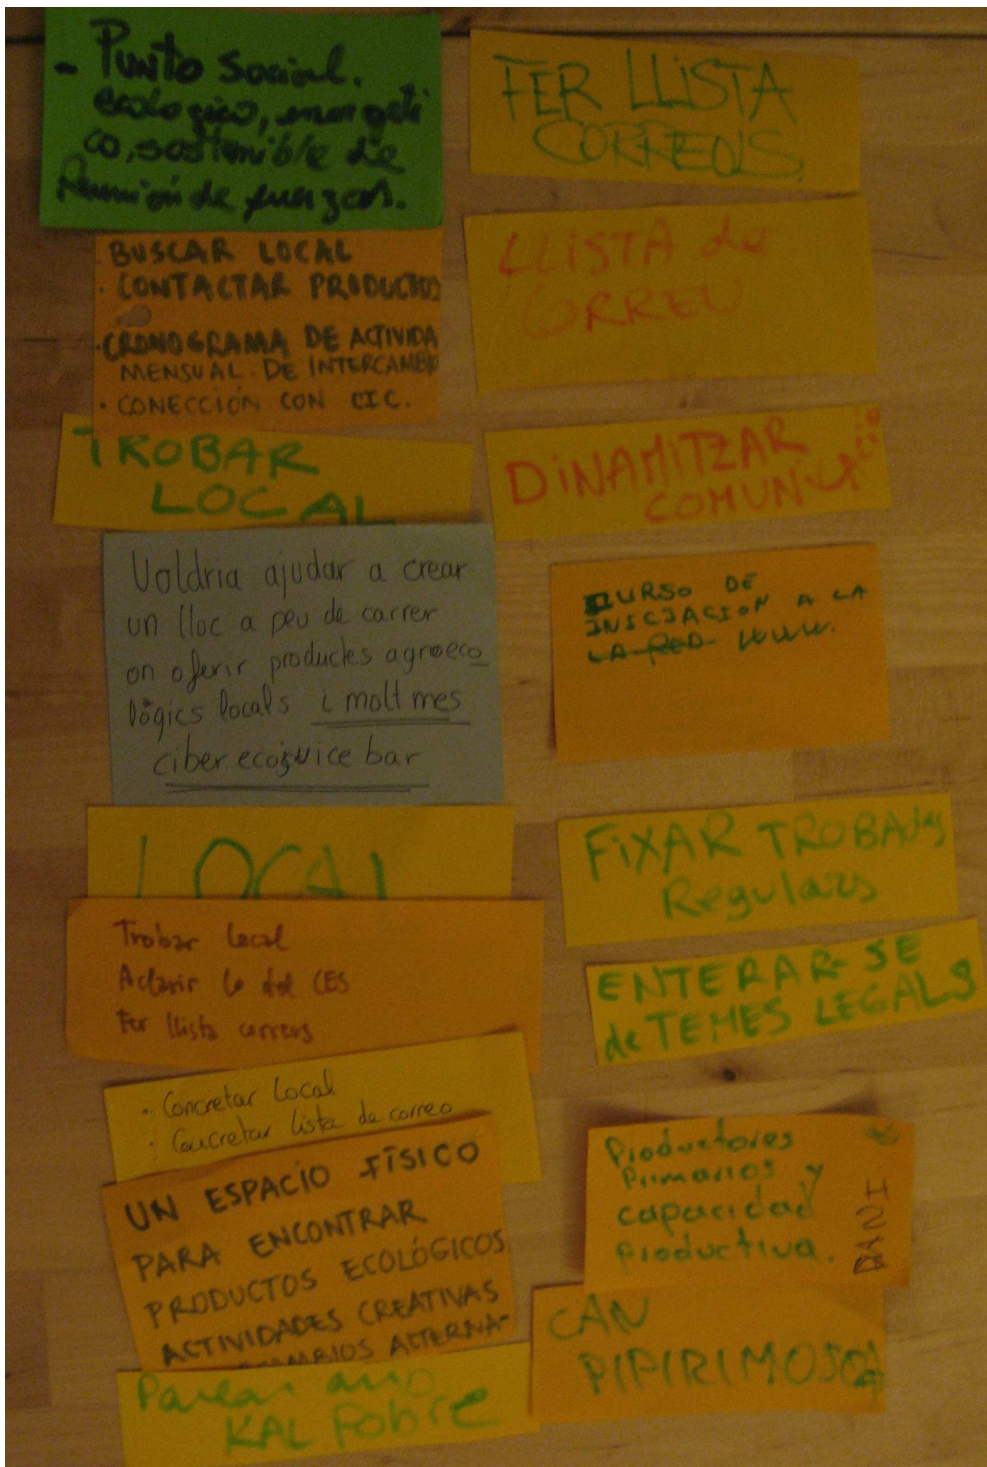 - Punto Social.
ecologico, energeti
co, sostenible de
Reunión de fuerzas.
· BUSCAR LOCAL
· CONTACTAR PRODUCTOS
· CRONOGRAMA DE ACTIVIDA
MENSUAL. DE INTERCAMBIO
· CONECCIÓN CON CIC.
TROBAR
LOCAL
Voldria ajudar a crear
un lloc a peu de carrer
on oferir productes agroeco
lògics locals i molt mes
ciber ecojuice bar
LOCAL
Trobar local
Aclarir lo del CES
Fer llista correus
· Concretar Local
· Concretar lista de correo
UN ESPACIO FÍSICO
PARA ENCONTRAR
PRODUCTOS ECOLÓGICOS
ACTIVIDADES CREATIVAS
ALTERNA-
KAL Pobre
FER LLISTA
CORREOS.
LLISTA de
CORREU
DINAMITZAR
COMUNICACIÓ
CURSO DE
INICIACION A LA
LA RED WWW.
FIXAR TROBAdes
Regulars
ENTERAR-SE
de TEMES LEGALS
Productores
Primarios y
capacidad
productiva.
CAN
PIPIRIMOSCA